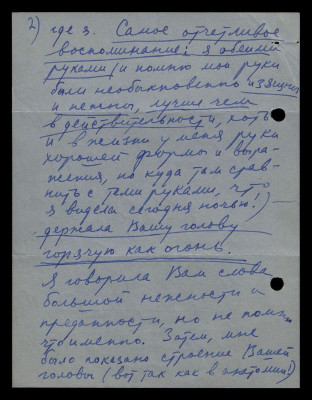 2) где я. Самое отчетливое
воспоминание: я своими
руками (и помню мои руки
были необыкновенно изящны
и нежны, лучше чем
в действительности, хоть
и в жизни у меня руки
хорошей формы и выра-
жения, но куда там срав-
нить с теми руками, что
я видела сегодня ночью!)
держала Вашу голову
горячую как огонь.
Я говорила Вам слова
большой нежности и
преданности, но не помню
что именно. Затем, мне
было показано строение Вашей
головы (вот так как в анатомии!)